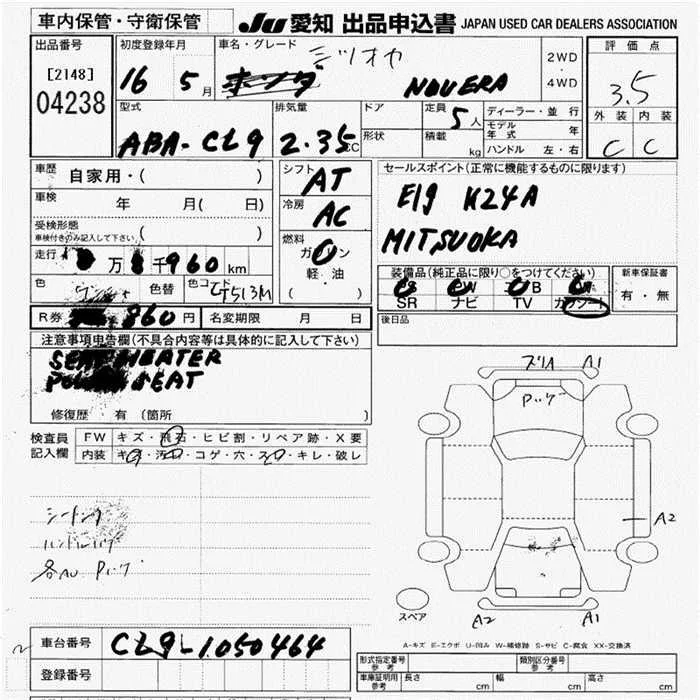 車内保管・守衛保管 JU 愛知 出品申込書 JAPAN USED CAR DEALERS ASSOCIATION
出品番号 初度登録年月 車名・グレード ミツオカ 2WD 評価点
[2148] 16 5月 NOUERA 4WD 3.5
04238 型式 排気量 ドア 定員 5人 ディーラー・並行 外装 内装
ABA-CL9 2.35 CC 形状 積載 kg モデル年式 年 C C
ハンドル 左・右
車歴 自家用・( ) シフト AT セールスポイント(正常に機能するものに限ります)
車検 年 月( 日) 冷房 AC E19 K24A
受検形態 ( ) MITSUOKA
車検付きのみ記入して下さい 燃料
走行 万 8千960km ガソリン 装備品(純正品に限り○をつけてください) 新車保証書
色 色替 色コード 軽・油 SR ナビ TV カワシート 有・無
( )
R券 860円 名変期限 月 日 後日品
注意事項申告欄(不具合内容等は具体的に記入して下さい)
SEAT HEATER
POWER SEAT A1
修復歴 有 (箇所 )
検査員 FW キズ・飛石・ヒビ割・リペア跡・X要
記入欄 内装 キズ・汚れ・コゲ・穴・スレ・キレ・破レ
A2
スペア A2 A1
車台番号 CL9-1050464
A-キズ E-エクボ U-凹み W-補修跡 S-サビ C-腐食 XX-交換済
登録番号 形式指定番号 参考 類別区分番号 参考
車庫証明用 参考 長さ cm 幅 cm 高さ cm